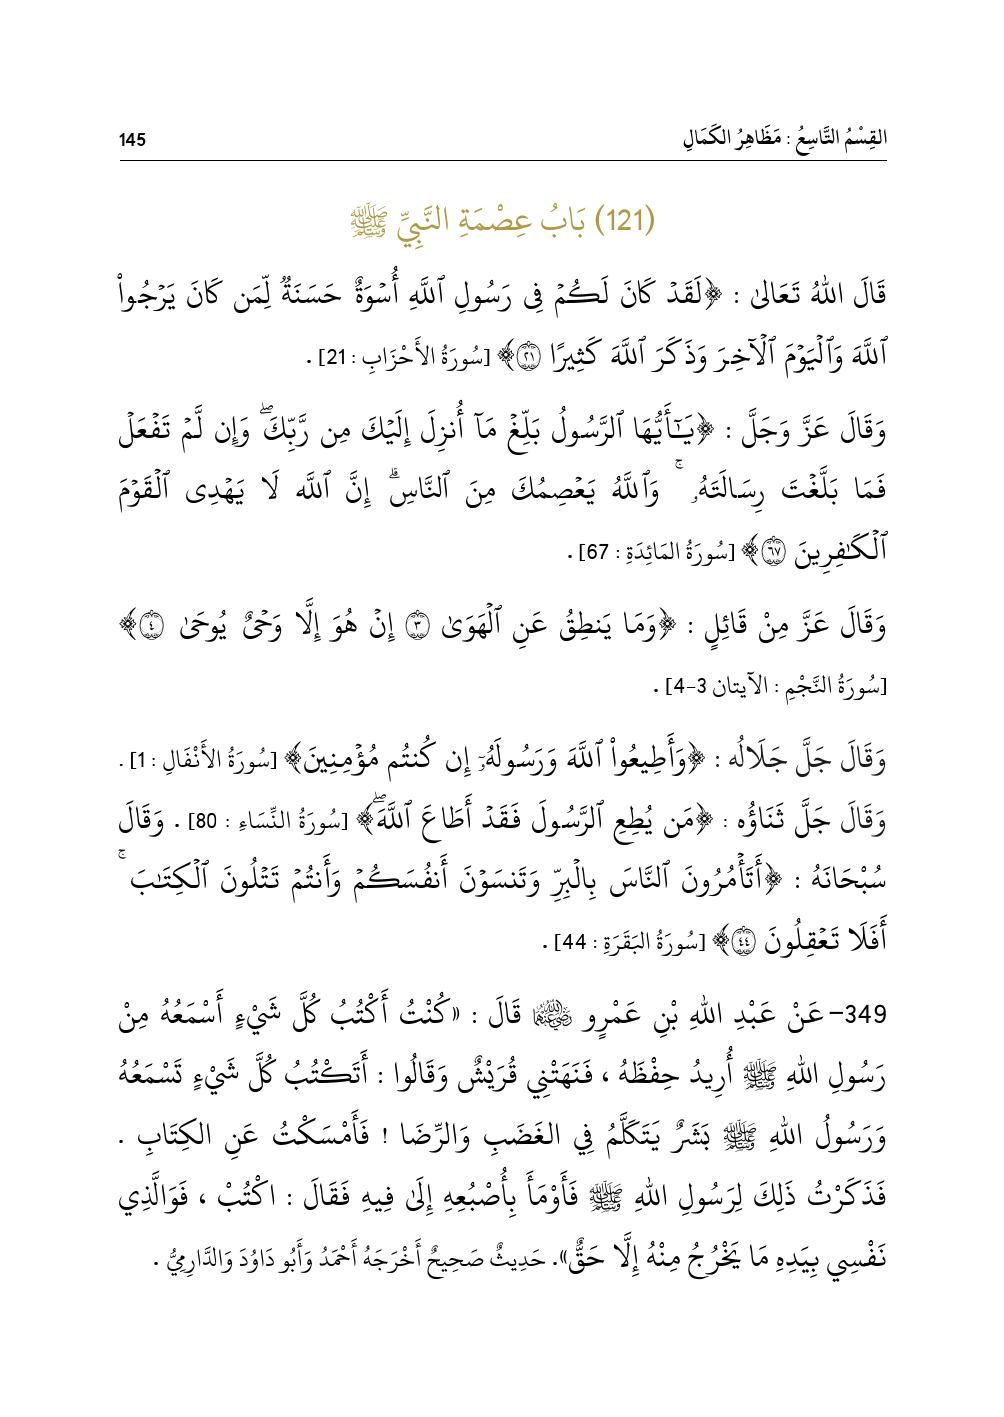 القِسْمُ التَّاسِعُ : مَظَاهِرُ الكَمَالِ 145
(121) بَابُ عِصْمَةِ النَّبِيِّ ﷺ
قَالَ اللهُ تَعَالىٰ : ﴿لَقَدۡ كَانَ لَكُمۡ فِى رَسُولِ ٱللَّهِ أُسۡوَةٌ حَسَنَةٌ لِّمَن كَانَ يَرۡجُواْ
ٱللَّهَ وَٱلۡيَوۡمَ ٱلۡآخِرَ وَذَكَرَ ٱللَّهَ كَثِيرًا ۝٢١﴾ [سُورَةُ الأَحْزَابِ : 21] .
وَقَالَ عَزَّ وَجَلَّ : ﴿يَـٰٓأَيُّهَا ٱلرَّسُولُ بَلِّغۡ مَآ أُنزِلَ إِلَيۡكَ مِن رَّبِّكَۖ وَإِن لَّمۡ تَفۡعَلۡ
فَمَا بَلَّغۡتَ رِسَالَتَهُۥۚ وَٱللَّهُ يَعۡصِمُكَ مِنَ ٱلنَّاسِۗ إِنَّ ٱللَّه لَا يَهۡدِى ٱلۡقَوۡمَ
ٱلۡكَـٰفِرِينَ ۝٦٧﴾ [سُورَةُ المَائِدَةِ : 67] .
وَقَالَ عَزَّ مِنْ قَائِلٍ : ﴿وَمَا يَنطِقُ عَنِ ٱلۡهَوَىٰ ۝٣ إِنۡ هُوَ إِلَّا وَحۡىٌ يُوحَىٰ ۝٤﴾
[سُورَةُ النَّجْمِ : الآيتان 3-4] .
وَقَالَ جَلَّ جَلَالُه : ﴿وَأَطِيعُواْ ٱللَّهَ وَرَسُولَهُۥٓ إِن كُنتُم مُؤۡمِنِينَ﴾ [سُورَةُ الأَنْفَالِ : 1] .
وَقَالَ جَلَّ ثَنَاؤُه : ﴿مَن يُطِعِ ٱلرَّسُولَ فَقَدۡ أَطَاعَ ٱللَّهَۖ﴾ [سُورَةُ النِّسَاءِ : 80] . وَقَالَ
سُبْحَانَهُ : ﴿أَتَأۡمُرُونَ ٱلنَّاسَ بِٱلۡبِرِّ وَتَنسَوۡنَ أَنفُسَكُمۡ وَأَنتُمۡ تَتۡلُونَ ٱلۡكِتَـٰبَۚ
أَفَلَا تَعۡقِلُونَ ۝٤٤﴾ [سُورَةُ البَقَرَةِ : 44] .
349- عَنْ عَبْدِ اللهِ بْنِ عَمْرٍو رضي الله عنهما قَالَ : «كُنْتُ أَكْتُبُ كُلَّ شَيْءٍ أَسْمَعُهُ مِنْ
رَسُولِ اللهِ ﷺ أُرِيدُ حِفْظَهُ ، فَنَهَتْنِي قُرَيْشٌ وَقَالُوا : أَتَكْتُبُ كُلَّ شَيْءٍ تَسْمَعُهُ
وَرَسُولُ اللهِ ﷺ بَشَرٌ يَتَكَلَّمُ فِي الغَضَبِ وَالرِّضَا ! فَأَمْسَكْتُ عَنِ الكِتَابِ .
فَذَكَرْتُ ذَلِكَ لِرَسُولِ اللهِ ﷺ فَأَوْمَأَ بِأُصْبُعِهِ إِلَىٰ فِيهِ فَقَالَ : اكْتُبْ ، فَوَالَّذِي
نَفْسِي بِيَدِهِ مَا يَخْرُجُ مِنْهُ إِلَّا حَقٌّ». حَدِيثٌ صَحِيحٌ أَخْرَجَهُ أَحْمَدُ وَأَبُو دَاوُدَ وَالدَّارِمِيُّ .